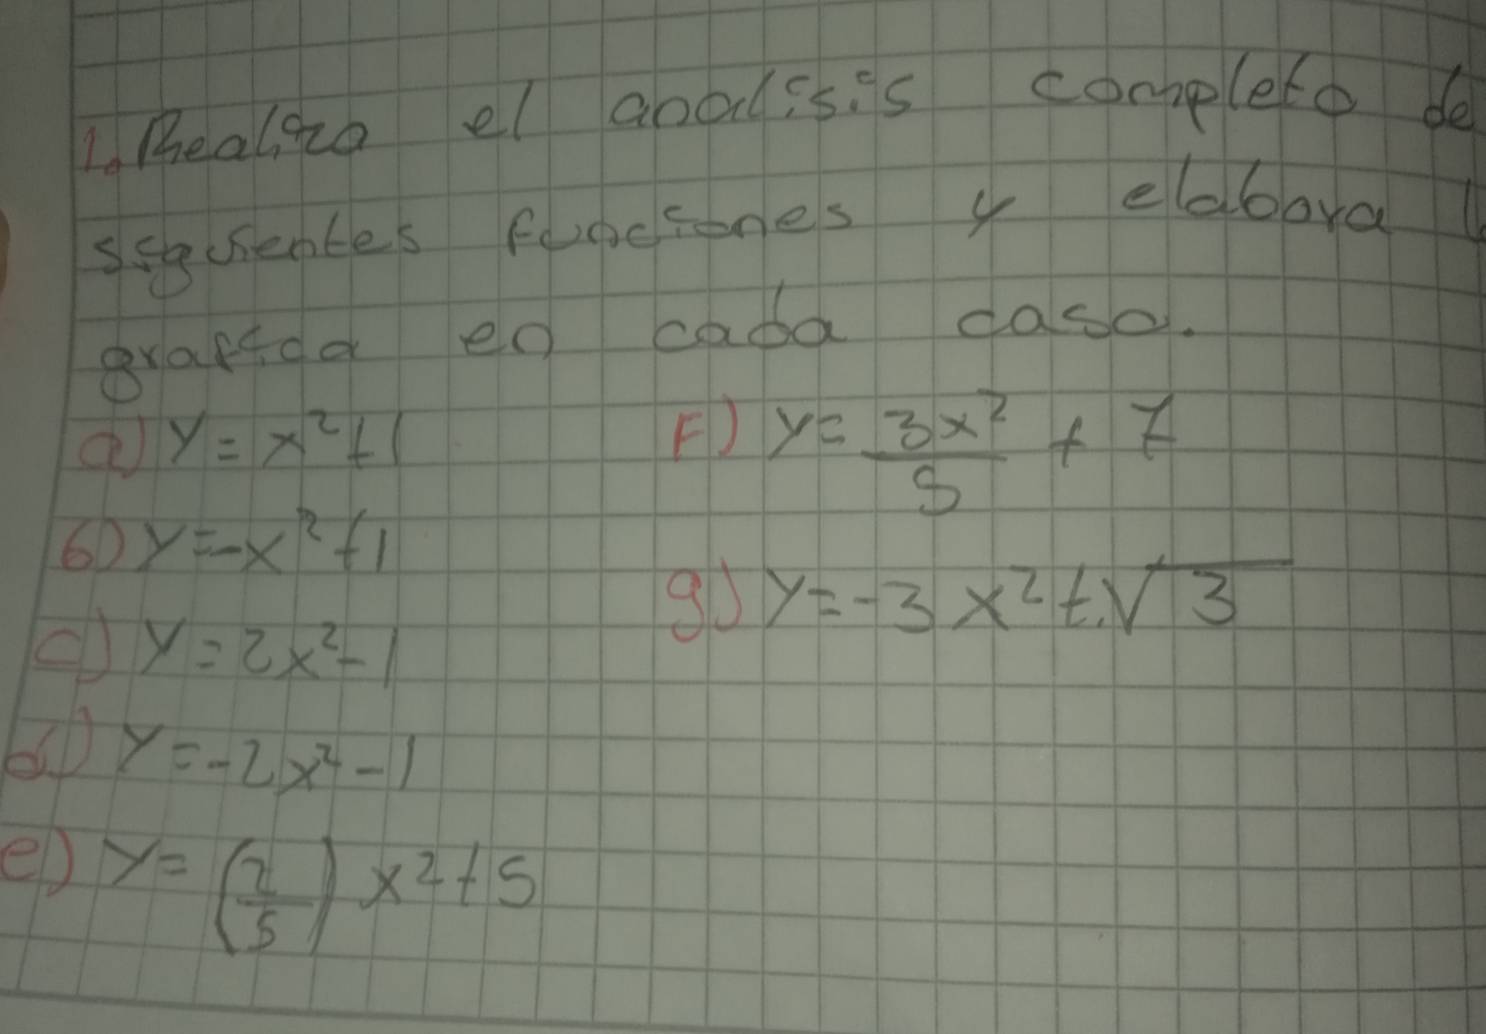 1. Realiza el analisis completo de
siguientes funciones y elabora
grafica en cada caso.
a) y = x² + 1
b) y = -x² + 1
c) y = 2x² - 1
d) y = -2x² - 1
e) y = (2/5) x² + 5
F) y = 3x²/5 + 7
g) y = -3x² + √3